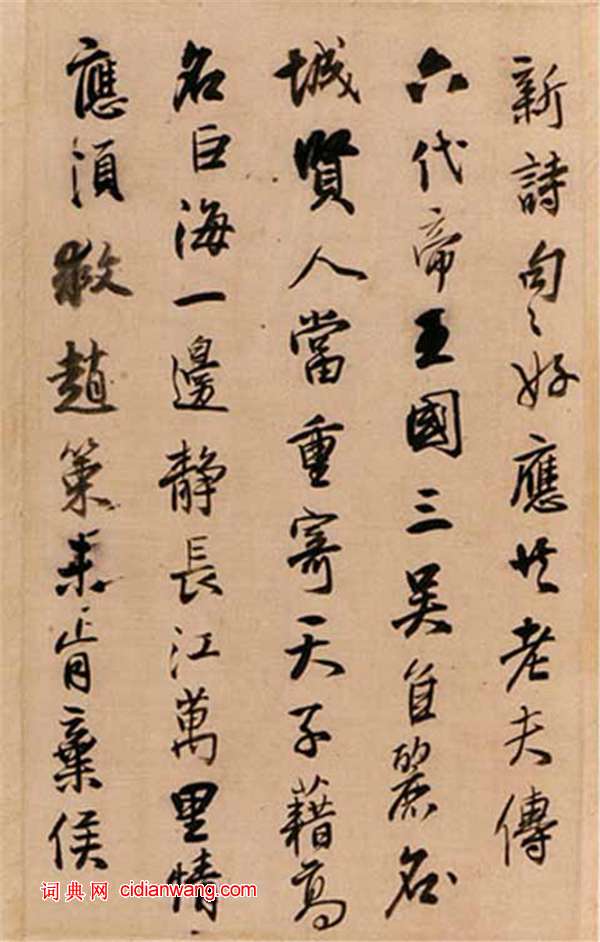 新詩句〻好應共老夫傳
六代帝王國三吳佳麗名
城賢人當重寄天子藉高
名巨海一邊静長江萬里情
應須救趙策未肯棄侯
词典网 cidianwang.com